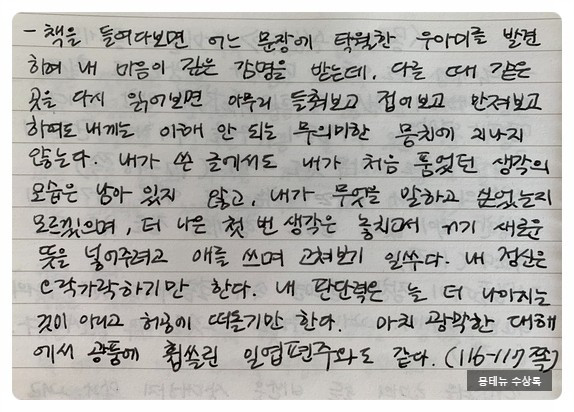 - 책을 들여다보면 어느 문장에 탁월한 우아미를 발견
하여 내 마음이 깊은 감명을 받는데, 다를 때 같은
곳을 다시 읽어보면 아무리 들춰보고 접어보고 만져보고
하여도 내게는 이해 안 되는 무의미한 뭉치에 지나지
않는다. 내가 쓴 글에서도 내가 처음 품었던 생각의
모습은 남아 있지 않고, 내가 무엇을 말하고 싶었는지
모르겠으며, 더 나은 첫 번 생각은 놓치고서 거기 새로운
뜻을 넣어주려고 애를 쓰며 고쳐보기 일쑤다. 내 정신은
오락가락하기만 한다. 내 판단력은 늘 더 나아지는
것이 아니고 허공에 떠돌기만 한다. 마치 광막한 대해
에서 광풍에 휩쓸린 일엽편주와도 같다. (116-117쪽)
몽테뉴 수상록